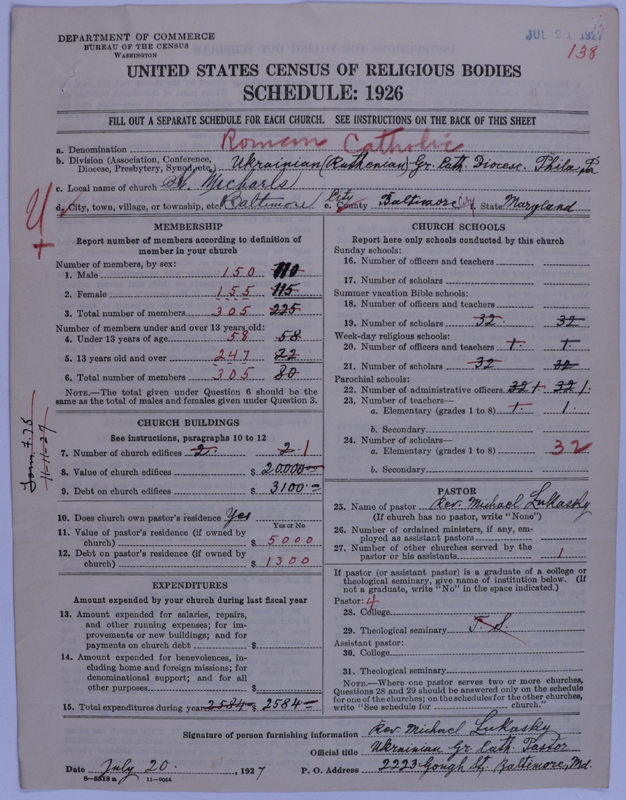 DEPARTMENT OF COMMERCE
BUREAU OF THE CENSUS
WASHINGTON
JUL 21 1927
138
UNITED STATES CENSUS OF RELIGIOUS BODIES
SCHEDULE: 1926
FILL OUT A SEPARATE SCHEDULE FOR EACH CHURCH. SEE INSTRUCTIONS ON THE BACK OF THIS SHEET
a. Denomination Roman Catholic
b. Division (Association, Conference, Diocese, Presbytery, Synod, etc.) Ukrainian (Ruthenian) Gr. Cath. Diocese. Phila, Pa
c. Local name of church St. Michaels
d. City, town, village, or township, etc. Baltimore City e. County Baltimore City f. State Maryland
MEMBERSHIP
Report number of members according to definition of
member in your church
Number of members, by sex:
1. Male 150 110
2. Female 155 115
3. Total number of members 305 225
Number of members under and over 13 years old:
4. Under 13 years of age 58 58
5. 13 years old and over 247 22
6. Total number of members 305 80
NOTE.—The total given under Question 6 should be
same as the total of males and females given under Question 3.
CHURCH BUILDINGS
See instructions, paragraphs 10 to 12
7. Number of church edifices 2 2. 1
8. Value of church edifices $ 20000—
9. Debt on church edifices $ 3100—
10. Does church own pastor's residence Yes
Yes or No
11. Value of pastor's residence (if owned by
church) $ 5000
12. Debt on pastor's residence (if owned by
church) $ 1300
EXPENDITURES
Amount expended by your church during last fiscal year
13. Amount expended for salaries, repairs,
and other running expenses; for im-
provements or new buildings; and for
payments on church debt $
14. Amount expended for benevolences, in-
cluding home and foreign missions; for
denominational support; and for all
other purposes $
15. Total expenditures during year 2584— $ 2584—
CHURCH SCHOOLS
Report here only schools conducted by this church
Sunday schools:
16. Number of officers and teachers
17. Number of scholars
Summer vacation Bible schools:
18. Number of officers and teachers
19. Number of scholars 32. 32
Week-day religious schools:
20. Number of officers and teachers 1. 1.
21. Number of scholars 32 32
Parochial schools:
22. Number of administrative officers 32 1 32 1.
23. Number of teachers—
a. Elementary (grades 1 to 8) 1. 1.
b. Secondary
24. Number of scholars—
a. Elementary (grades 1 to 8) 32
b. Secondary
PASTOR
25. Name of pastor Rev. Michael Lukasky
(If church has no pastor, write "None")
26. Number of ordained ministers, if any, em-
ployed as assistant pastors
27. Number of other churches served by the
pastor or his assistants 1
If pastor (or assistant pastor) is a graduate of a college or
theological seminary, give name of institution below. (If
not a graduate, write "No" in the space indicated.)
Pastor: 4
28. College
29. Theological seminary T. S.
Assistant pastor:
30. College
31. Theological seminary
NOTE.—Where one pastor serves two or more churches,
Questions 28 and 29 should be answered only on the schedule
for one of the churches; on the schedules for the other churches,
write "See schedule for church."
Signature of person furnishing information Rev. Michael Lukasky
Official title Ukrainian Gr. Cath. Pastor
Date July 20, 1927 P. O. Address 2223 Gough St. Baltimore, Md.
S—5518a 11—9054
11-11-27